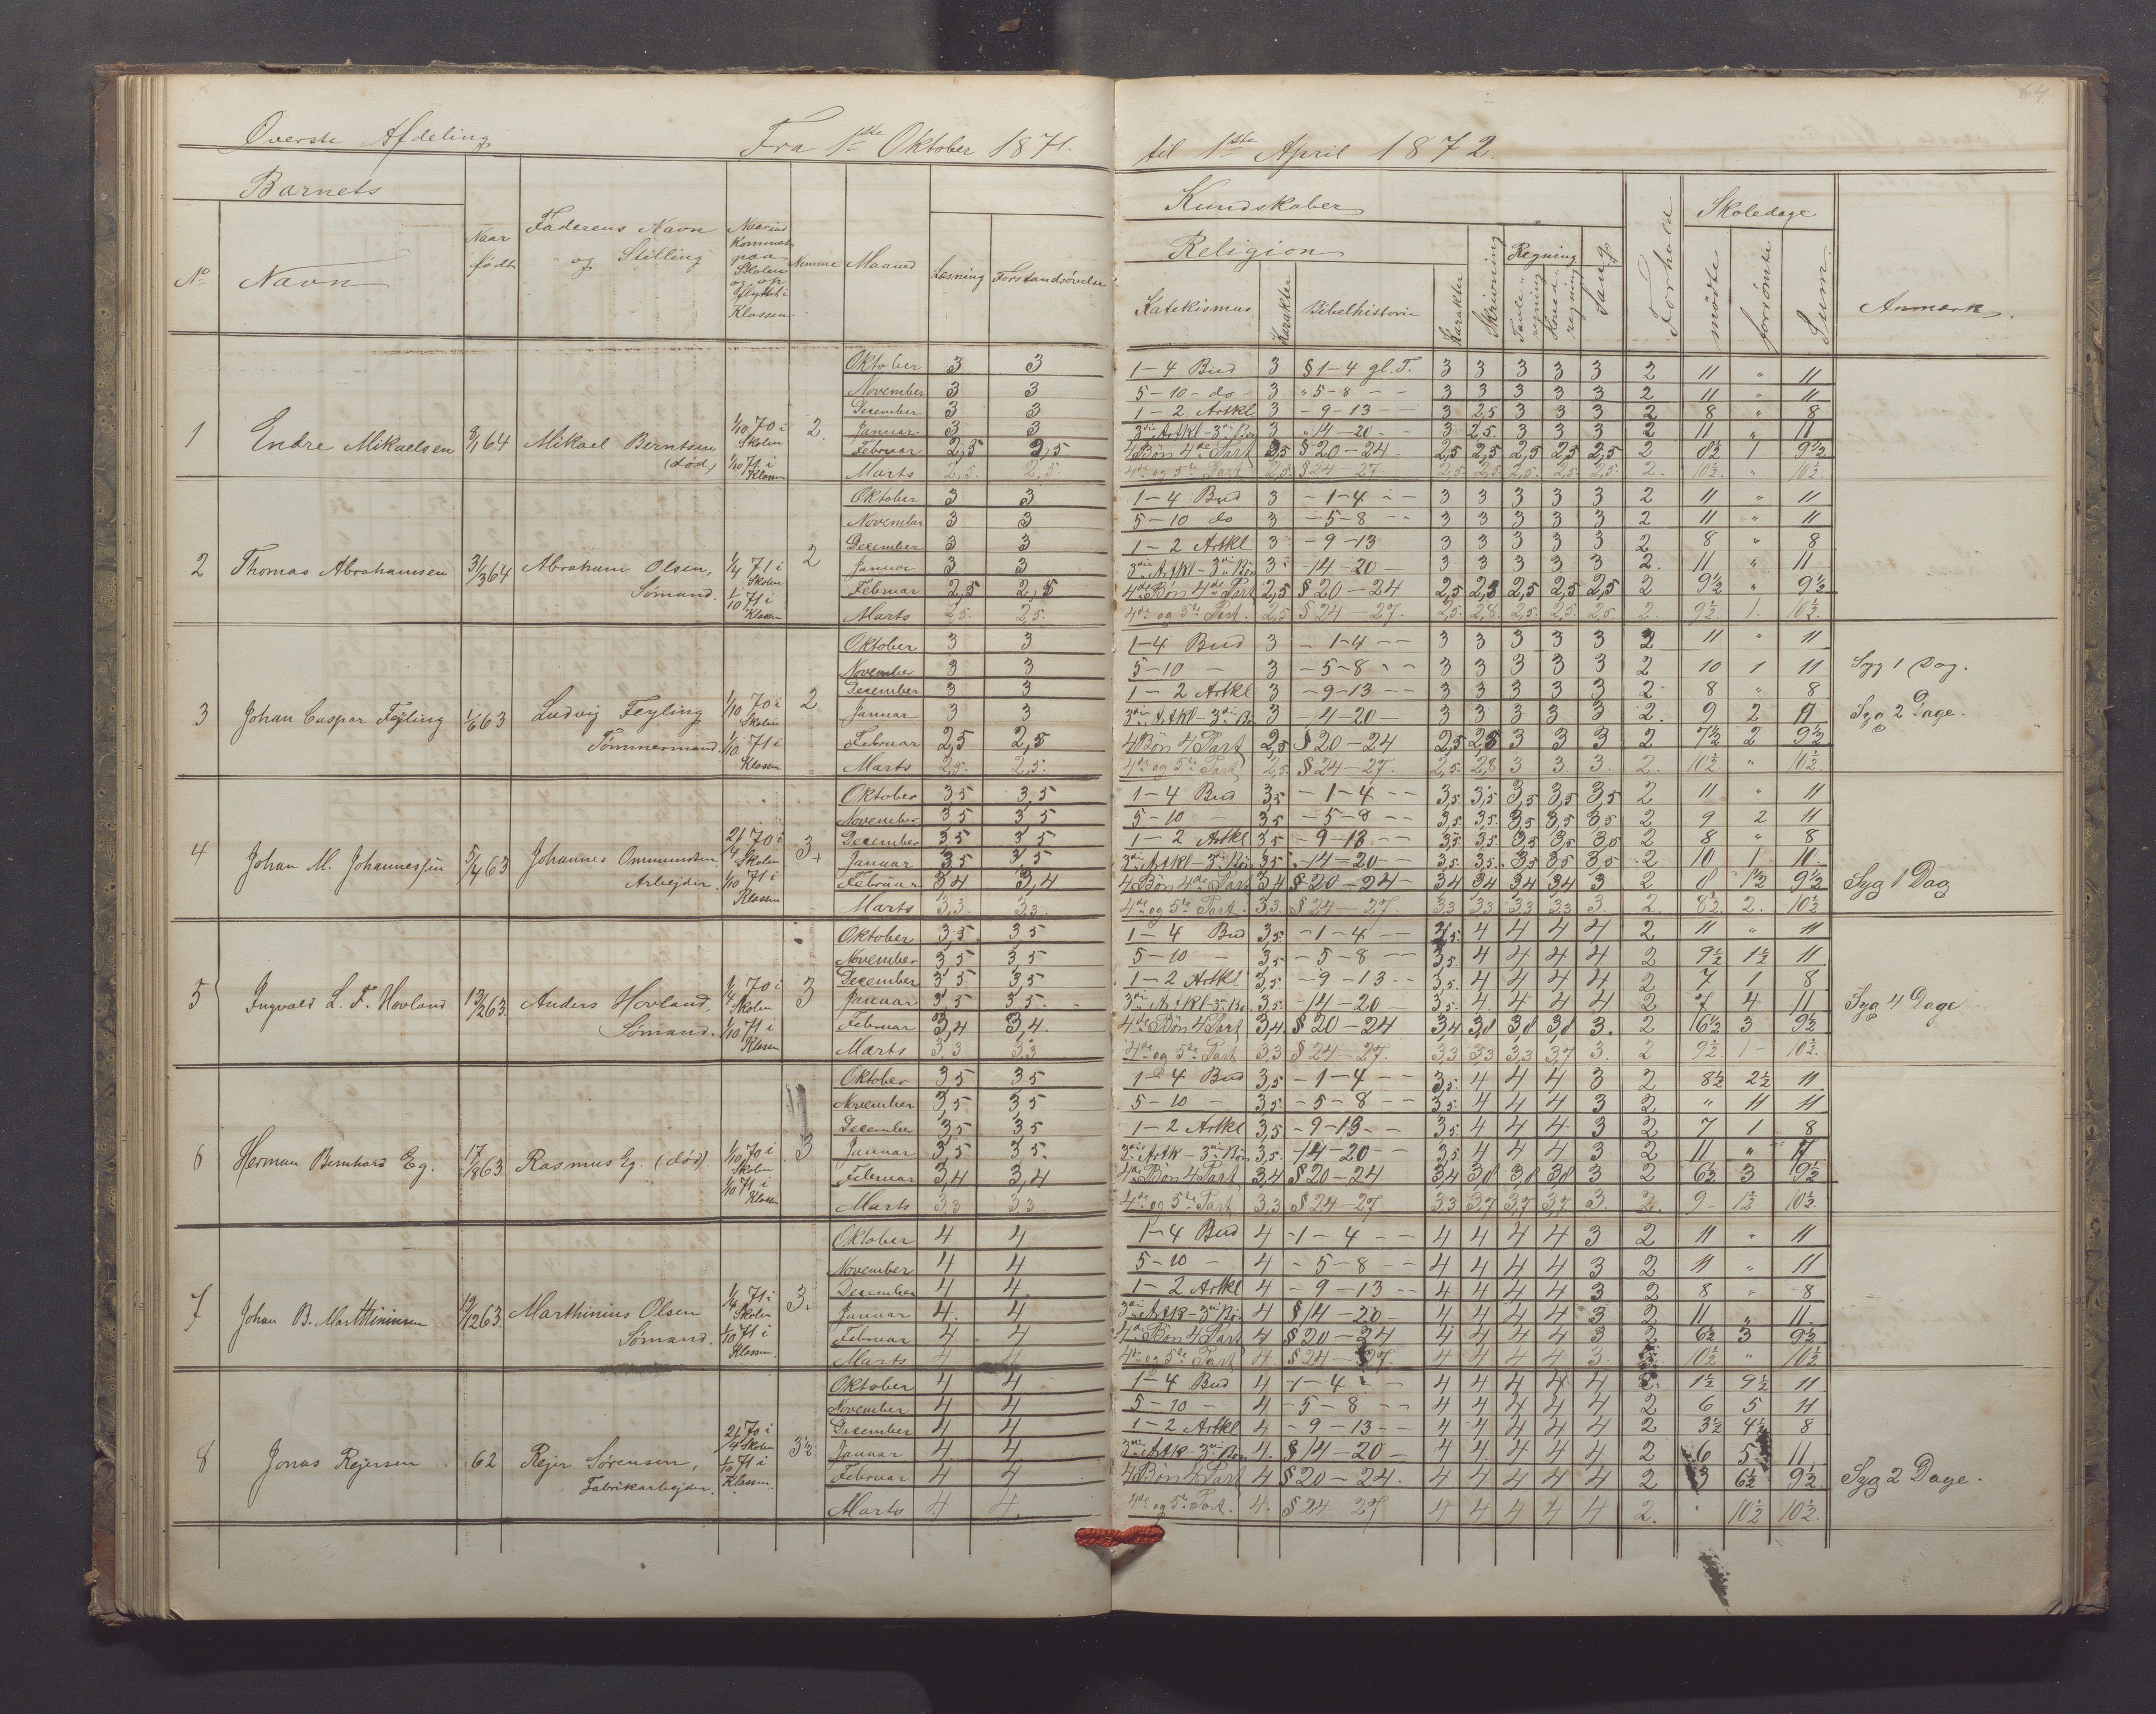 64
Øverste Afdeling Fra 1ste Oktober 1871. til 1ste April 1872.
Barnets Kundskaber Skoledage
No Navn Naar født Faderens Navn og Stilling Naar ind kommet paa Skolen og op flyttet i Klassen Nemme Maaned Læsning Forstandsøvelse Religion Katekismus Karakter Bibelhistorie Karakter Skrivning Regning Tavleregning Hovedregning Sang Forhold mødte forsømte Sum Anmærk.
Oktober 3 3 1-4 Bud 3 § 1-4 gl. T. 3 3 3 3 3 2 11 " 11
November 3 3 5-10 - do 3 " 5-8 - - 3 3 3 3 3 2 11 " 11
December 3 3 1-2 Artkl 3 - 9-13 - - 3 2,5 3 3 3 2 8 " 8
1 Endre Mikaelsen 8/1 64 Mikael Berntsen (død) 1/10 70 i Skolen 1/10 71 i Klassen 2. Januar 3 3 3die Artkl - 3die Bøn 3 " 14-20 - 3 2,5. 3 3 3 2 11 " 11
Februar 2,5 2,5 4 Bøn 4de Part 2,5 § 20-24 2,5 2,5 2,5 2,5 2,5 2 8½ 1 9½
Marts 2,5. 2,5. 4de og 5te Part 2,5. § 24-27 2,5. 2,5 2,5. 2,5. 2,5. 2. 10½ " 10½.
Oktober 3 3 1-4 Bud 3 - 1-4 - - 3 3 3 3 3 2 11 " 11
November 3 3 5-10 do 3 - 5-8 - - 3 3 3 3 3 2 11 " 11
December 3 3 1-2 Artkl 3 - 9-13 3 3 3 3 3 2 8 " 8
2 Thomas Abrahamsen 31/3 64 Abraham Olsen, Sømand. 1/4 71 i Skolen 1/10 71 i Klassen 2 Januar 3 3 3die Artkl - 3die Bøn 3 - 14-20 - 3 3 3 3 3 2. 11 " 11
Februar 2,5 2,5 4de Bøn 4de Part 2,5 § 20-24 2,5 2,8 2,5 2,5 2,5 2 9½ " 9½
Marts 2,5. 2,5. 4de og 5te Part. 2,5 § 24-27. 2,5. 2,8. 2,5. 2,5. 2,5. 2. 9½. 1. 10½.
Oktober 3 3 1-4 Bud 3 - 1-4 - - 3 3 3 3 3 2 11 " 11
November 3 3 5-10 - 3 - 5-8 - - 3 3 3 3 3 2 10 1 11 Syg 1 Dag.
December 3 3 1-2 Artkl 3 - 9-13 - - 3 3 3 3 3 2 8 " 8
3 Johan Caspar Fejling 1/6 63 Ludvig Feyling Tømmermand. 1/10 70 i Skolen 1/10 71 i Klassen 2 Januar 3 3 3die Artkl - 3die Bø 3 - 4-20 - 3 3 3 3 3 2. 9 2 11 Syg 2 Dage.
Februar 2,5 2,5 4 Bøn 4 Part 2,5 § 20-24 2,5 2,8 3 3 3 2 7½ 2 9½
Marts 2,5. 2,5. 4de og 5te Part 2,5. § 24-27. 2,5. 2,8 3 3 3. 2. 10½. " 10½.
Oktober 3 5 3,5 1-4 Bud 3,5 - 1-4 - - 3,5 3,5 3,5 3,5 3,5 2 11 " 11
November 3 5 3 5 5-10 - 3,5 - 5-8 - - 3,5 3,5. 3,5 3,5 3,5 2 9 2 11
December 3 5 3 5 1-2 Artkl 3,5 - 9-13 - - 3,5. 3,5 3,5 3,5 3,5 2 8 " 8
4 Johan M. Johannessen 5/4 63 Johannes Ommundsen Arbejder. 21/4 70 i Skolen 1/10 71 i Klassen 3+ Januar 3 5 3 5 3die Artkl - 3die Bøn 3,5. - 14-20 - - 3,5. 3,5. 3,5 3,5 3,5 2 10 1 11
Februar 3,4 3,4 4 Bøn 4de Part 3,4 § 20-24 - 3,4 3,4 3,4 3,4 3 2 8 1½ 9½ Syg 1 Dag
Marts 3,3. 3,3. 4de og 5te Part. 3,3. § 24-27. 3,3 3,3 3,3 3,3 3. 2. 8½. 2. 10½
Oktober 3,5 3 5 1-4 Bud 3,5 - 1-4 - - 3,5. 4 4 4 4 2 11 " 11
November 3 5 3,5 5-10 - 3,5 - 5-8 - - 3,5 4 4 4 4 2 9½ 1½ 11
December 3 5 3,5 1-2 Artkl 3,5 - 9-13 - - 3,5. 4 4 4 4 2 7 1 8
5 Ingvald L. F. Hovland 13/2 63. Anders Hovland, Sømand. 1/4 70 i Skolen 1/10 71 i Klassen 3 Januar 3,5 3 5. 3die Artkl - 3 Bø. 3,5. - 14-20 3,5. 4. 4 4 4 2 7 4 11 Syg 4 Dage
Februar 3,4 3,4. 4de Bøn 4 Part 3,4 § 20-24 3,4 3,8 3,8 3,8 3. 2 6½ 3 9½
Marts 3,3 3,3 4de og 5te Part 3,3 § 24-27. 3,3 3,3 3,3 3,7 3. 2 9½. 1 - 10½.
Oktober 3 5 3 5 1-4 Bud 3,5 - 1-4 - - 3,5. 4 4 4 3 2 8½ 2½ 11
November 3,5 3 5 5-10 - 3,5. - 5-8 - - 3,5 4 4 4 3 2 " 11 11
December 3,5 3 5 1-2 Artkl 3,5 - 9-13 - - 3,5. 4 4 4 3 2 7 1 8
6 Herman Bernhard Eg. 17/8 63 Rasmus Eg. (død) 1/10 70 i Skolen 1/10 71 i Klassen 3 Januar 3 5 3 5. 3die Artk - 3die Bøn 3,5. - 14-20 - - 3,5 4 4 4 3 2 11 " 11
Februar 3,4 3,4 4de Bøn 4 Part 3,4 § 20-24 3,4 3,8 3,8 3,8 3 2 6½ 3 9½
Marts 3,3 3,3 4de og 5te Part 3,3 § 24-27 3,3 3,7 3,7 3,7 3. 2. 9 - 1½ 10½.
Oktober 4 4 1-4 Bud 4 - 1-4 - - 4 4 4 4 3 2 11 " 11
November 4 4 5-10 - 4 - 5-8 - - 4 4 4 4 3 2 11 " 11
December 4 4. 1-2 Artkl 4 - 9-13 - - 4 4 4 4 3 2 8 " 8
7 Johan B. Marthiniusen 19/12 63. Marthinius Olsen Sømand. 1/4 71 i Skolen 1/10 71 i Klassen. 3. Januar 4. 4 3die Artk - 3die Bø 4 § 14-20 - 4 4 4 4 3 2 11 " 11.
Februar 4 4 4de Bøn 4 Part 4 § 20-24 4 4 4 4 3 2 6½ 3 9½
Marts 4 4 4de og 5te Part 4. § 24-27. 4 4. 4 4 3. 10½ " 10½
Oktober 4 4 1-4 Bud 4 - 1-4 - - 4 4 4 4 4 2. 1½ 9½ 11
November 4 4 5-10 - 4 - 5-8 - - 4 4 4 4 4 2 6 5 11
December 4 4 1-2 Artkl 4 - 9-13 - - 4 4 4 4 4 2 3½ 4½ 8
8 Jonas Rejersen 62 Rejer Sørensen, Fabrikarbejder. 21/4 70 i Skolen 1/10 71 i Klassen. 3½ Januar 4. 4. 3die Artk - 3die Bøn 4. § 14-20 - 4. 4. 4 4 4 2 6 5 11
Februar 4 4 4 Bøn 4 Part 4 § 20-24. 4 4 4 4 4 2 3 6½ 9½ Syg 2 Dage.
Marts 4. 4. 4de og 5te Part. 4. § 24 27 4 4 4 4 4 2. " 10½ 10½.